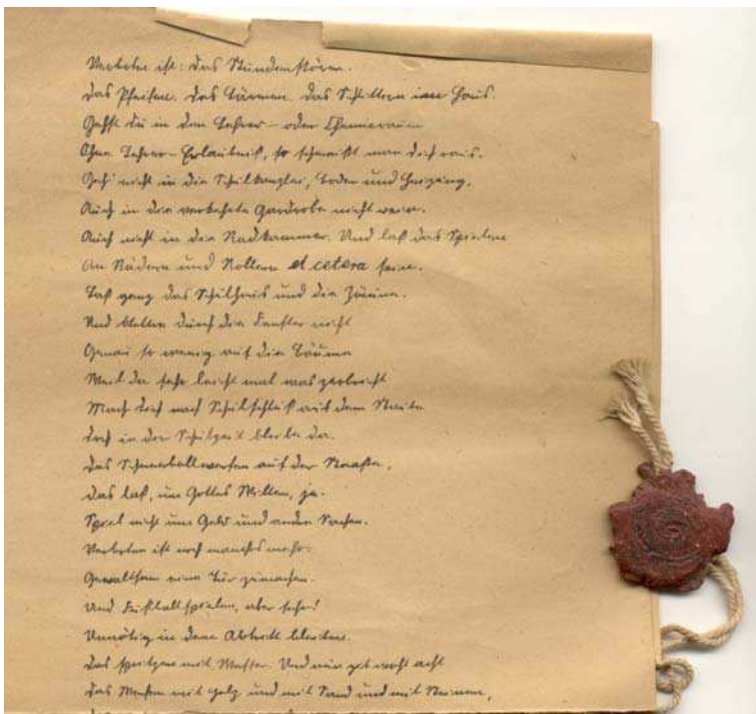 Verboten ist: Das Stundenstören.
Das Pfeifen. Das Lärmen. Das Schlittern im Haus.
Gehst du in den Lehrer- oder Chemieraum
Ohne Lehrer-Erlaubnis, so schmeißt man dich raus.
Geh' nicht in die Schulkanzlei, Boden und Heizung.
Auch in die verkehrte Garderobe nicht
Auch nicht in die Radkammer. Und laß das Spielen
An Rädern und Rollern et cetera sein.
Laß ganz das Schulhaus und die Zäune.
Und klettre durch die Fenster nicht
Genau so wenig auf die Bäume
Weil da sehr leicht mal was zerbricht
Mach dich nach Schulschluß aus dem Staube
doch in der Schulzeit bleibe da.
Das Schneeballwerfen auf der Straße,
das laß, um Gottes Willen, ja.
Spiel nicht um Geld und andre Sachen.
Verboten ist noch manches mehr:
Gewaltsam eine Tür zumachen.
Und Fußballspielen, aber sehr!
Unnötig in dem Abtritt bleiben.
Das Spritzen mit Wasser. Und nun gebt wohl acht
Das Werfen mit Holz und mit Sand und mit Steinen,